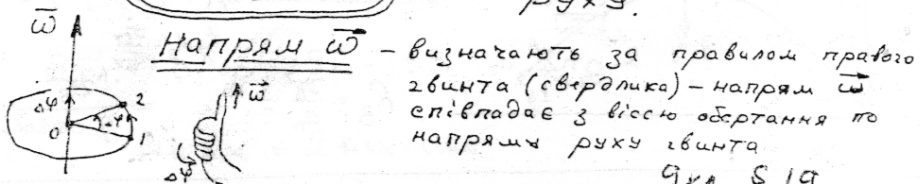 руху.
ω
Напрям ω – визначають за правилом правого
гвинта (свердлика) – напрям ω
співпадає з віссю обертання по
напряму руху гвинта
ω
Δφ
2
0
Δφ
1
Δφ